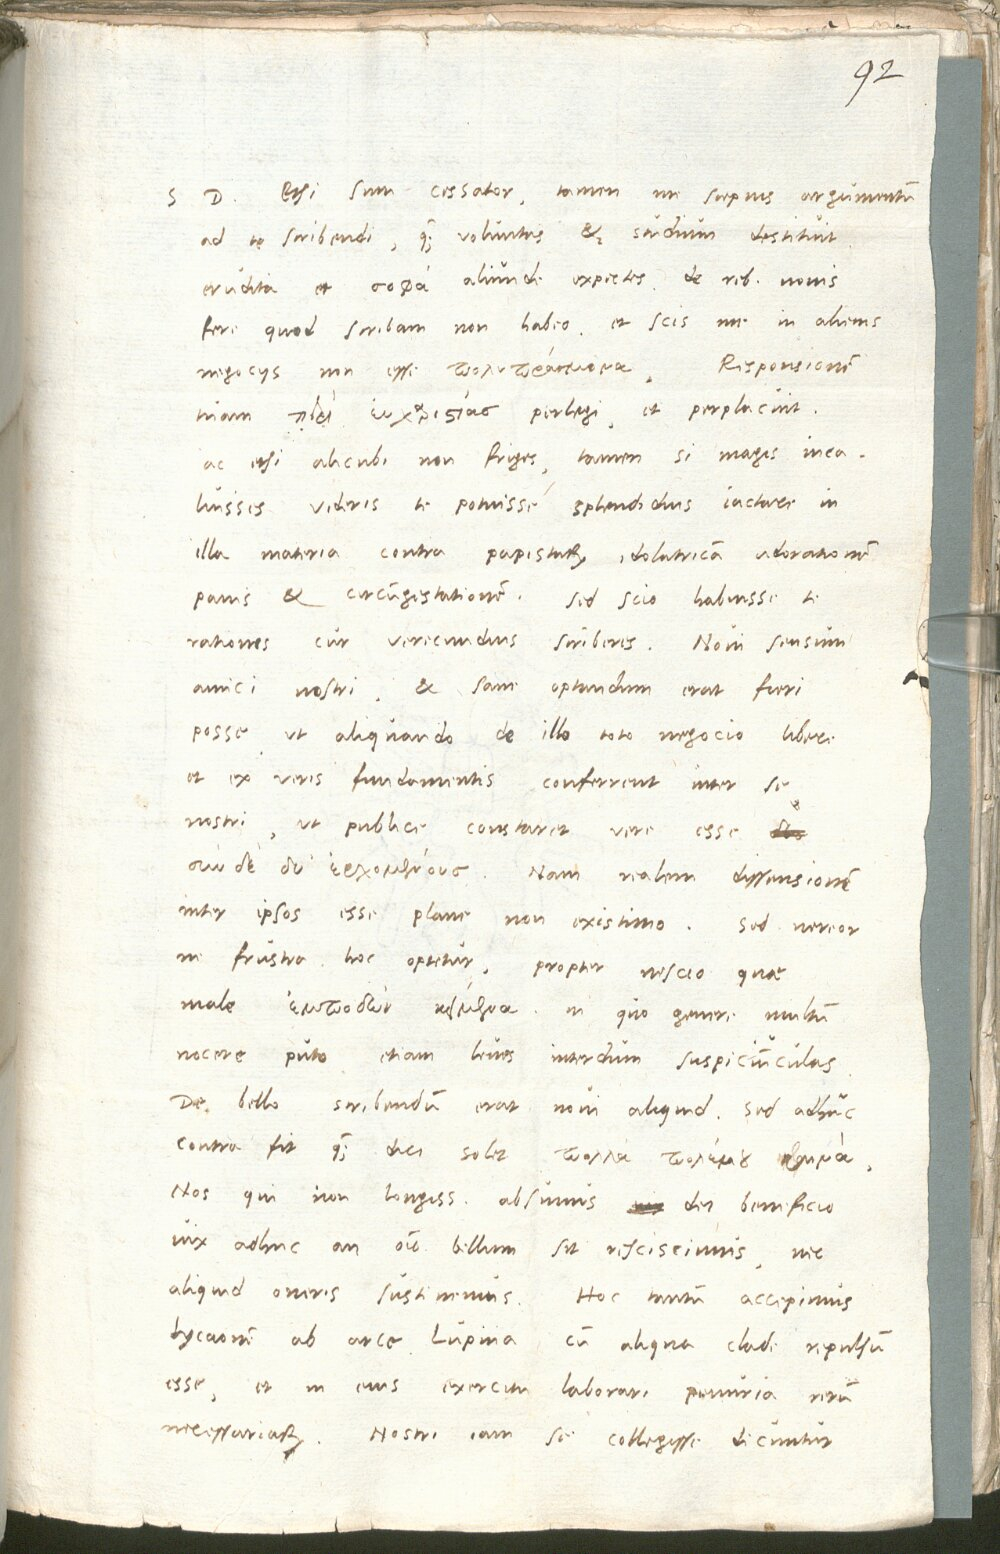 92
S D. Etsi sum cessator, tamen me saepius argumentū
ad te scribendi, q̃; voluntas & studium destituit
erudita et σοφά aliunde expectes. de reb. nouis
fere quod scribam non habeo. et scis me in alienis
negocijs non esse πολυπράγμονα. Responsionē
tuam περὶ εὐχαριστίας perlegi, et perplacuit.
ac etsi alicubi non friges, tamen si magis inca-
luisses videris te potuisse splendidius iactare in
illa materia contra papistarꝝ idolatricā adorationē
panis & circūgestationē. Sed scio habuisse te
rationes cur verecundius scriberes. Noui sensum
amici nostri, & sane optandum erat fieri
posse vt aliquando de illo toto negocio libere
et ex veris fundamentis conferrent inter se
nostri, vt publice constaret vere esse
σὺν δὲ δύ' ἐρχομένους. Nam realem dissensionē
inter ipsos esse plane non existimo. Sed uereor
ne frustra hoc optetur, propter nescio quae
male ἐμποδὼν κείμενα. in quo genere multū
nocere puto etiam leues interdum suspiciunculas.
De bello scribendū erat noui aliquid. Sed adhuc
contra fit q̃; dici solet πολλὰ πολέμου κενά.
Nos qui non longiss. absumus dei beneficio
uix adhuc an oīo bellum sit resciscimus, nec
aliquid oneris sustinemus. Hoc tantū accepimus
Lycaonē ab arce Lupina cū aliqua clade repulsū
esse, et in eius exercitu laborari penuria rerū
necessariarꝝ. Nostri iam se collegisse dicuntur